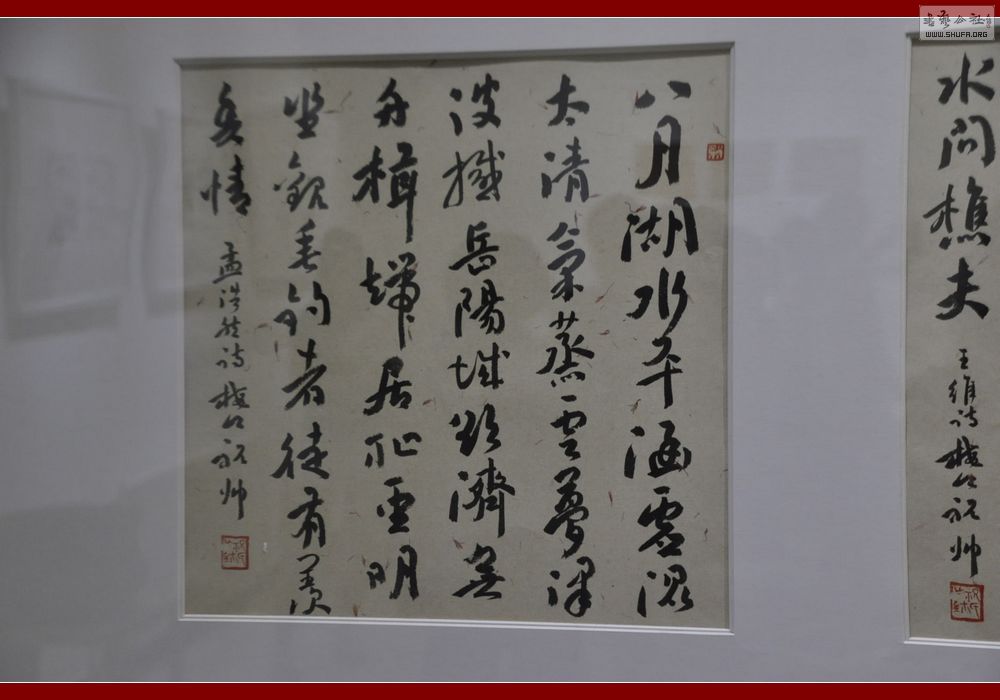 書藝公社
WWW.SHUFA.ORG
水問樵夫
王維詩 祝帅
八月湖水平涵虛混
太清氣蒸雲夢澤
波撼岳陽城欲濟無
舟楫端居恥聖明
坐觀垂釣者徒有羨
魚情
孟浩然詩 祝帅